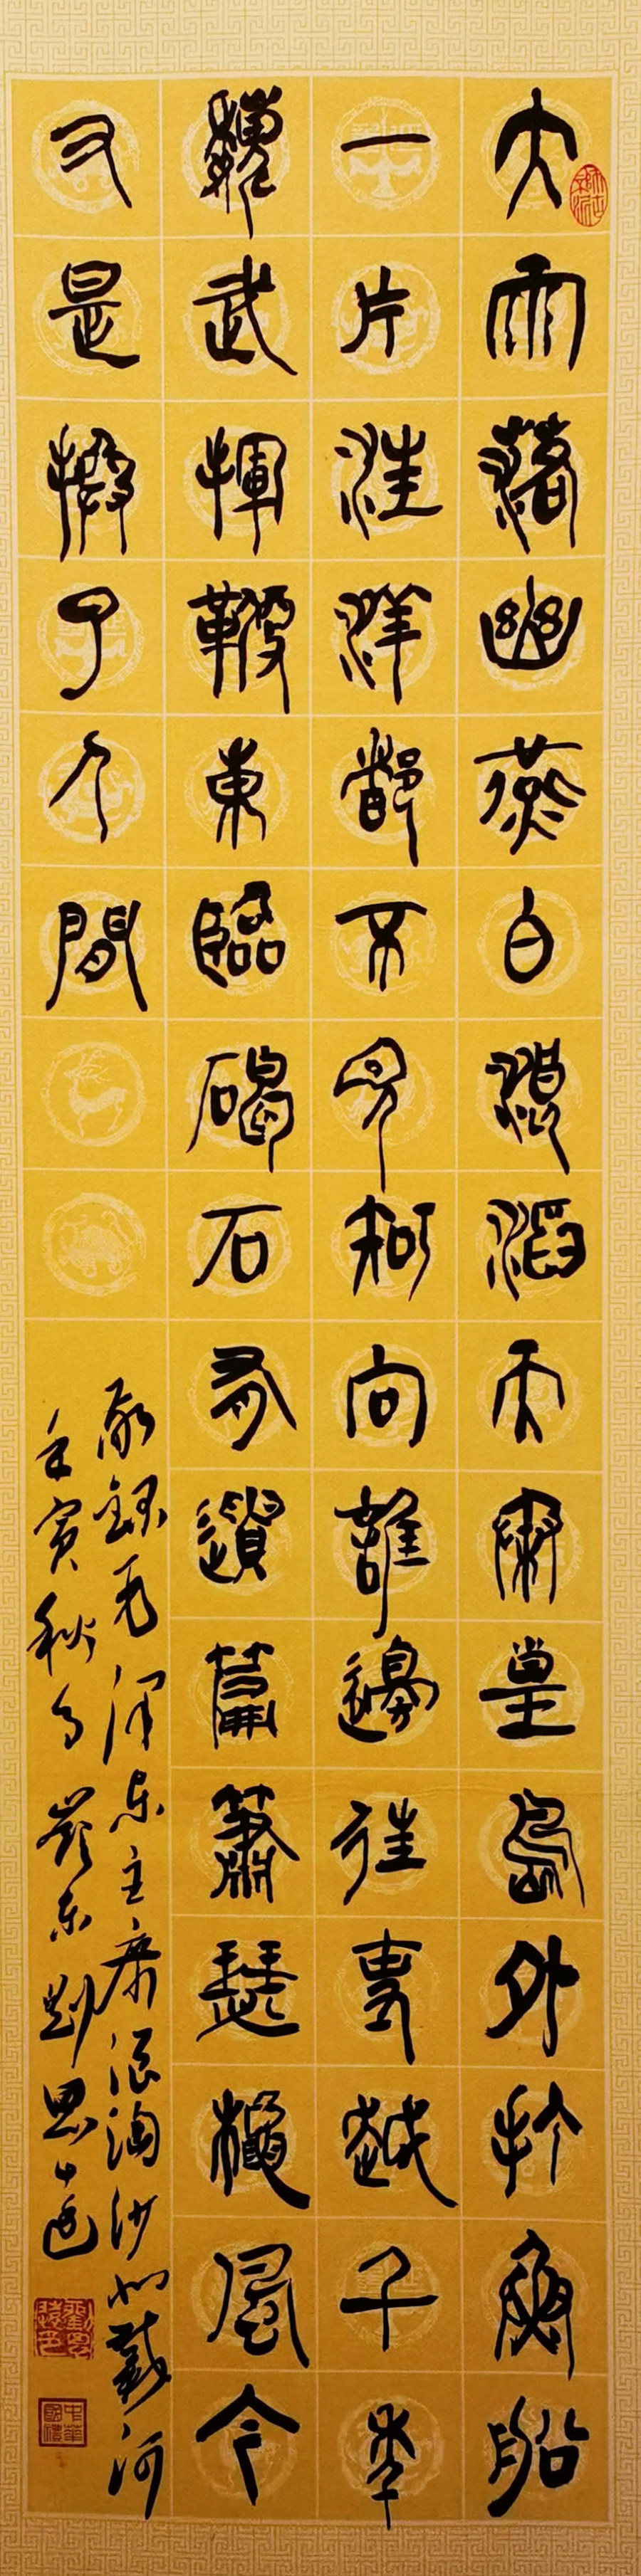 大雨落幽燕白浪滔天秦皇島外打魚船
一片汪洋都不見知向誰邊往事越千年
魏武揮鞭東臨碣石有遺篇蕭瑟秋風今
又是換了人間
敬錄毛泽东主席浪淘沙北戴河
壬寅秋月岭东刘思
中華國禮